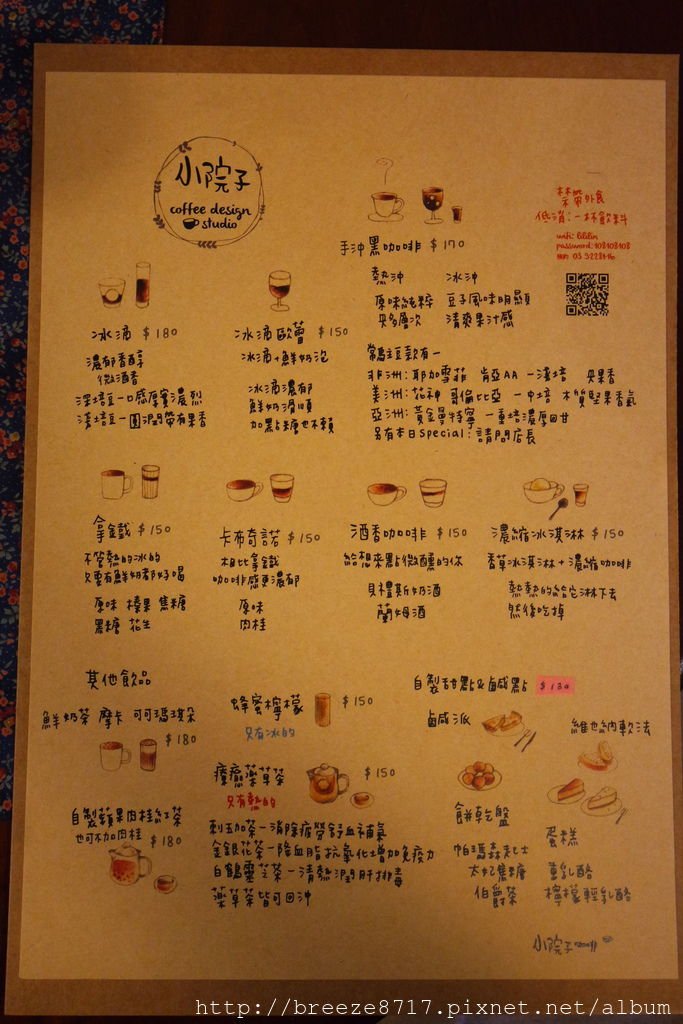 小院子
coffee design
studio
禁帶外食
低消:一杯飲料
wifi: lililin
password: 108108108
手沖黑咖啡 $170
熱沖
原味純粹
夾多層次
冰沖
豆子風味明顯
清爽果汁感
常馬主豆款有一
非洲:耶加雪菲 肯亞AA 一淺培 夾果香
美洲:花神 哥倫比亞 一中培 木質堅果香氣
亞洲:黃金曼特寧 一重培濃厚回甘
另有本日Special:請問店長
冰滴 $180
濃郁香醇
微酒香
深培豆一口感厚實濃烈
淺培豆一圓潤帶有果香
冰滴歐蕾 $150
冰滴+鮮奶泡
冰滴濃郁
鮮奶滑順
加點糖也不賴
拿鐵 $150
不管熱的冰的
只要有鮮奶都好喝
原味 榛果 焦糖
黑糖 花生
卡布奇諾 $150
相比拿鐵
咖啡感更濃郁
原味
肉桂
酒香咖啡 $150
給想來點微醺的你
貝禮斯奶酒
蘭姆酒
濃縮冰淇淋 $150
香草冰淇淋+濃縮咖啡
熱熱的給它淋下去
然後吃掉
其他飲品
鮮奶茶 摩卡 可可瑪琪朵
$180
自製蘋果肉桂紅茶
也可不加肉桂 $180
蜂蜜檸檬 $150
只有冰的
療癒藥草茶 $150
只有熱的
刺五加茶一消除疲勞舒血補氣
金銀花茶一降血脂抗氧化增加免疫力
白鶴靈芝茶一清熱潤肝排毒
藥草茶皆可回沖
自製甜點&鹹點 $130
鹹派
維也納軟法
餅乾盤
帕瑪森起士
太妃焦糖
伯爵茶
蛋糕
重乳酪
檸檬輕乳酪
小院子
http://breeze8717.pixnet.net/album